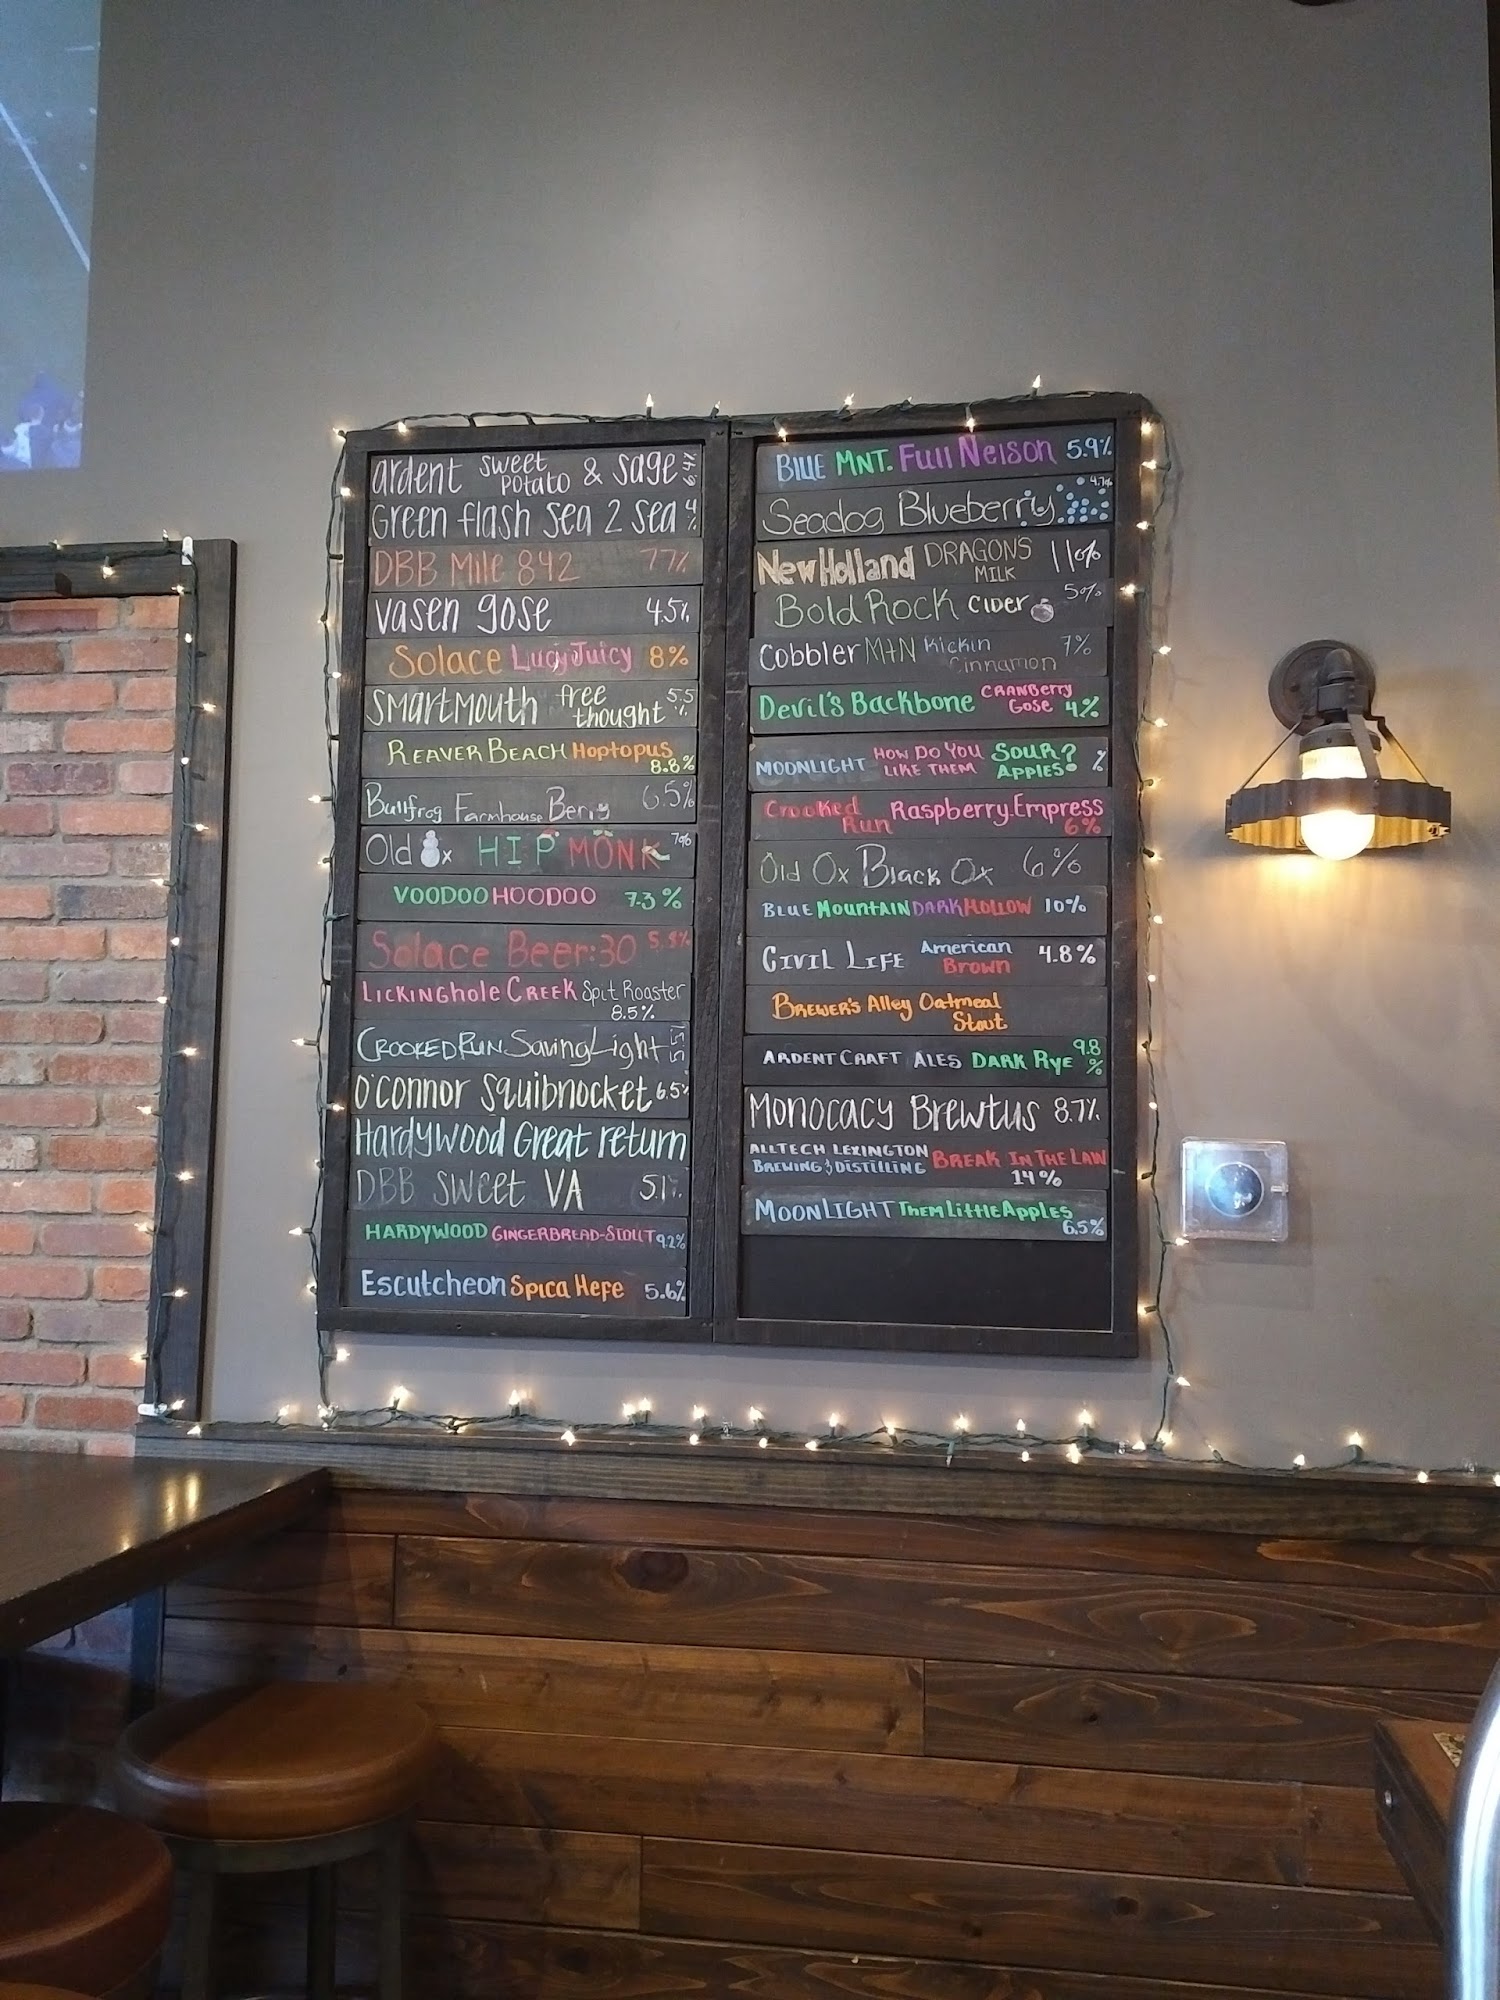 ardent sweet potato & sage 6.4%
Green flash Sea 2 Sea 4%
DBB Mile 842 77%
Vasen gose 4.5%
Solace Lucy Juicy 8%
Smartmouth free thought 5.5%
Reaver Beach Hoptopus 8.8%
Bullfrog Farmhouse Berry 6.5%
Old Ox HIP MONK 7%
VOODOO HOODOO 7.3%
Solace Beer:30 5.8%
Lickinghole Creek Spit Roaster 8.5%
Crooked Run Saving Light
O'Connor Squibnocket 6.5%
Hardywood Great return
DBB Sweet VA 5.1%
Hardywood Gingerbread-Stout 9.2%
Escutcheon Spica Hefe 5.6%
Blue Mnt. Full Nelson 5.9%
Seadog Blueberry 4.7%
New Holland DRAGON'S MILK 11%
Bold Rock Cider 5%
Cobbler MtN Kickin Cinnamon 7%
Devil's Backbone Cranberry Gose 4%
MOONLIGHT HOW DO YOU LIKE THEM SOUR APPLES? %
Crooked Run Raspberry Empress 6%
Old Ox Black Ox 6%
Blue Mountain Dark Hollow 10%
Civil Life American Brown 4.8%
Brewer's Alley Oatmeal Stout
Ardent Craft Ales Dark Rye 9.8%
Monocacy Brewtus 8.7%
Alltech Lexington Brewing & Distilling Break In The Law 14%
Moonlight Them Little Apples 6.5%